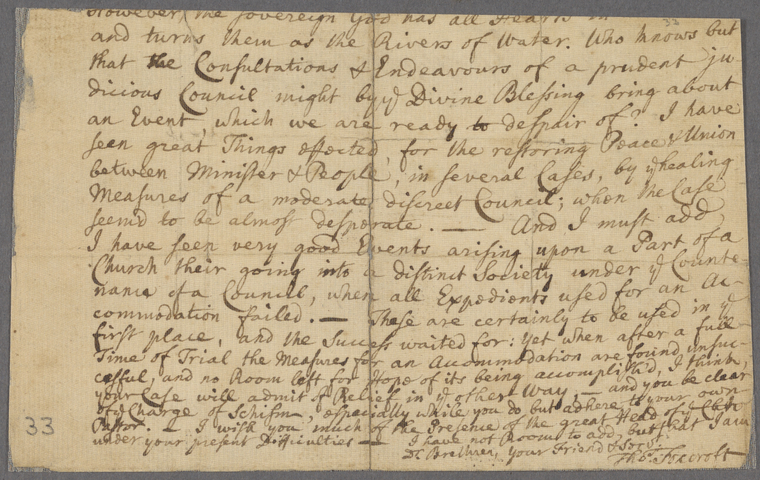 However, the sovereign God has all Hearts in
33
and turns them as the Rivers of Water. Who knows but
that the Consultations & Endeavours of a prudent ju-
dicious Council might by yͤ Divine Blessing bring about
an Event, which we are ready to despair of? I have
seen great Things effected, for the restoring Peace & Union
between Minister & People, in several Cases, by yͤ healing
Measures of a moderate, discreet Council; when the Case
seem'd to be almost desperate. — And I must add,
I have seen very good Events arising upon a Part of a
Church their going into a distinct Society under yͤ Counte-
nance of a Council, when all Expedients used for an Ac-
commodation failed. — These are certainly to be used in yͤ
first place, and the Success waited for: Yet when after a full
Time of Trial the Measures for an Accommodation are found unsuc-
cessful, and no Room left for Hope of its being accomplish'd, I think,
your Case will admit of Relief in yͤ other Way; — and you be clear
of yͤ Charge of Schism, especially while you do but adhere to your own
Pastor. — I wish you much of the Presence of the great Head of yͤ Chh
under your present Difficulties —
I have not Room to add, but that I am
Dr Brethren, your Friend & Servt
Tho: Foxcroft
33